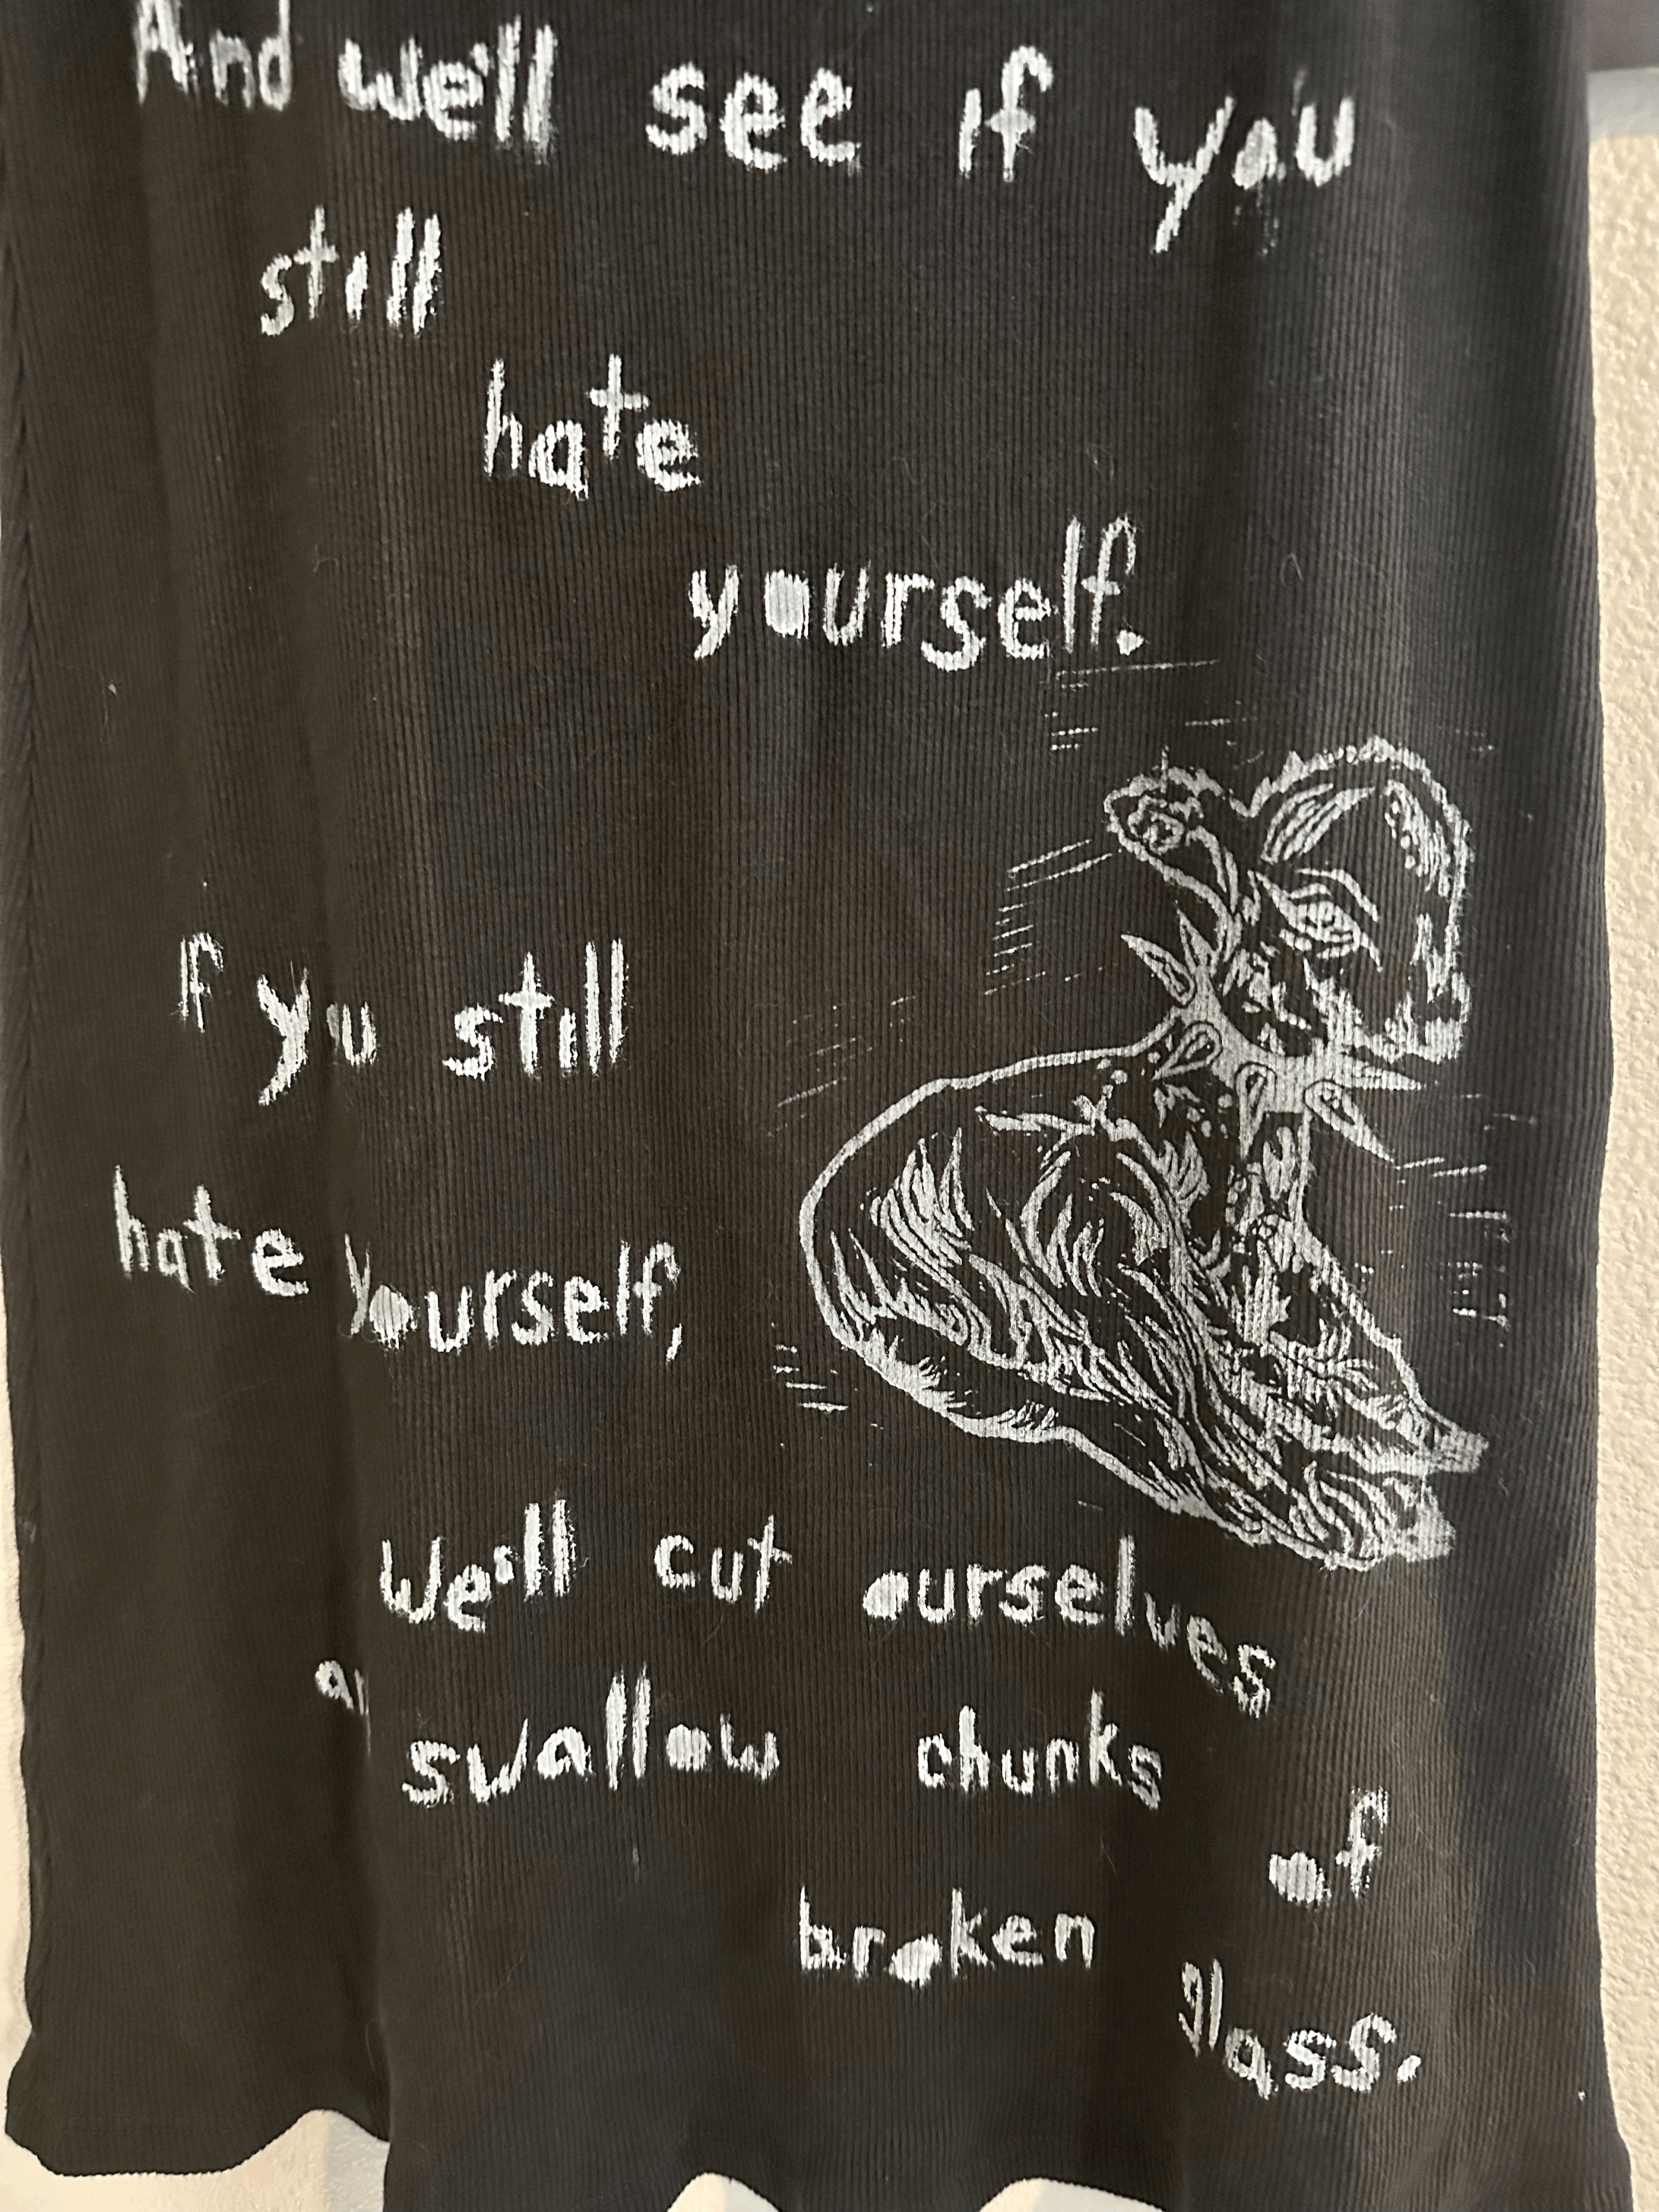 And we'll see if you
still
hate
yourself.
If you still
hate yourself,
We'll cut ourselves
swallow chunks
of
broken
glass.